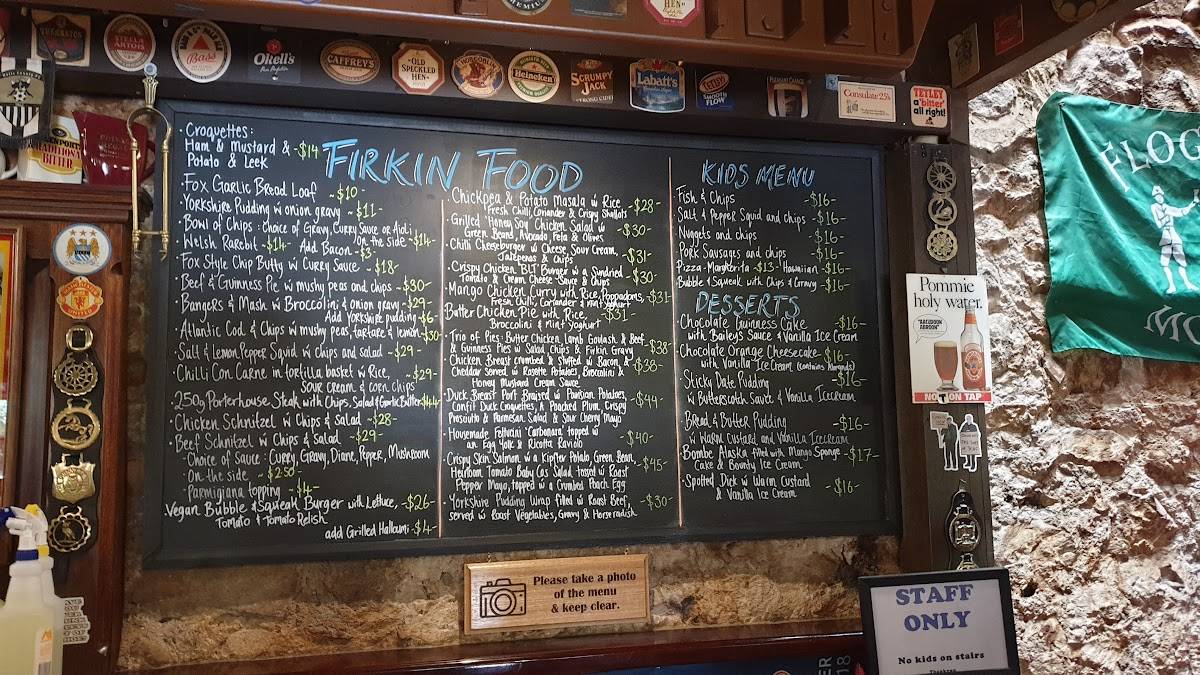 STELLA ARTOIS
Bass
Okell's
CAFFREY'S
OLD SPECKLED HEN
HOBGOBLIN
Heineken
SCRUMPY JACK
STRONG CIDER
Labatt's
TETLEY'S
SMOOTH FLOW
Consulate 25's
TETLEY
a 'bitter'
all right!
TRADITIONAL BITTER
FIRKIN FOOD
Croquettes:
Ham & Mustard & -$14
Potato & Leek
Fox Garlic Bread Loaf -$10-
Yorkshire Pudding w onion gravy -$11-
Bowl of Chips: choice of Gravy, Curry Sauce or Aioli
On the side -$14-
Welsh Rarebit -$14- Add Bacon -$3-
Fox Style Chip Butty w Curry Sauce -$18-
Beef & Guinness Pie w mushy peas and chips -$30-
Bangers & Mash w Broccolini & onion gravy -$29-
Add Yorkshire pudding -$6-
Atlantic Cod & Chips w mushy peas, tartare & lemon -$30-
Salt & Lemon Pepper Squid w chips and salad -$29-
Chilli Con Carne in tortilla basket w Rice, -$29-
sour cream & corn chips
250g Porterhouse Steak with Chips, Salad & Garlic Butter -$44-
Chicken Schnitzel w Chips & Salad -$28-
Beef Schnitzel w Chips & Salad -$29-
-Choice of Sauce: Curry, Gravy, Diane, Pepper, Mushroom
-On the side -$2.50-
-Parmigiana topping -$4-
Vegan Bubble & Squeak Burger with Lettuce, -$26-
Tomato & Tomato Relish
add Grilled Halloumi -$4-
Chickpea & Potato Masala w Rice -$28-
Fresh Chilli, Coriander & Crispy Shallots
Grilled 'Honey Soy' Chicken Salad w -$30-
Green Beans, Avocado, Feta & Olives
Chilli Cheeseburger w Cheese, Sour Cream, -$31-
Jalepenos & Chips
Crispy Chicken 'BLT' Burger w a Sundried -$30-
Tomato & Cream Cheese Sauce & Chips
Mango Chicken Curry with Rice, Poppadoms, -$31-
Fresh Chilli, Coriander & mint yoghurt
Butter Chicken Pie with Rice, -$31-
Broccolini & Mint yoghurt
Trio of Pies: Butter Chicken, Lamb Goulash & Beef
& Guinness Pies w Salad, Chips & Firkin Gravy -$38-
Chicken Breast crumbed & Stuffed w Bacon & -$38-
Cheddar served w Rosette Potatoes, Broccolini &
Honey Mustard Cream Sauce
Duck Breast Port Braised w Parisian Potatoes, -$44-
Confit Duck Croquettes, A Poached Plum, Crispy
Prosciutto & Parmesan Salad & Sour Cherry Mayo
Housemade Fettucini 'Carbonara' topped w -$40-
an Egg Yolk & Ricotta Raviolo
Crispy Skin Salmon w a Kipfler Potato, Green Bean, -$45-
Heirloom Tomato Baby Cos Salad tossed w Roast
Pepper Mayo, topped w a Crumbed Poach Egg
Yorkshire Pudding Wrap filled w Roast Beef, -$30-
served w Roast Vegetables, Gravy & Horseradish
KIDS MENU
Fish & Chips -$16-
Salt & Pepper Squid and chips -$16-
Nuggets and chips -$16-
Pork Sausages and chips -$16-
Pizza - Margherita -$13- Hawaiian -$16-
Bubble & Squeak with Chips & Gravy -$16-
DESSERTS
Chocolate Guinness Cake -$16-
with Baileys Sauce & Vanilla Ice Cream
Chocolate Orange Cheesecake -$16-
with Vanilla Ice Cream (contains Almonds)
Sticky Date Pudding -$16-
w Butterscotch Sauce & Vanilla Icecream
Bread & Butter Pudding -$16-
w Warm Custard and Vanilla Icecream
Bombe Alaska filled with Mango Sponge -$17-
Cake & Bounty Ice Cream
Spotted Dick w Warm Custard -$16-
& Vanilla Ice Cream
Please take a photo
of the menu
& keep clear.
Pommie
holy water.
NOW ON TAP
STAFF
ONLY
No kids on stairs
FLOG
MO